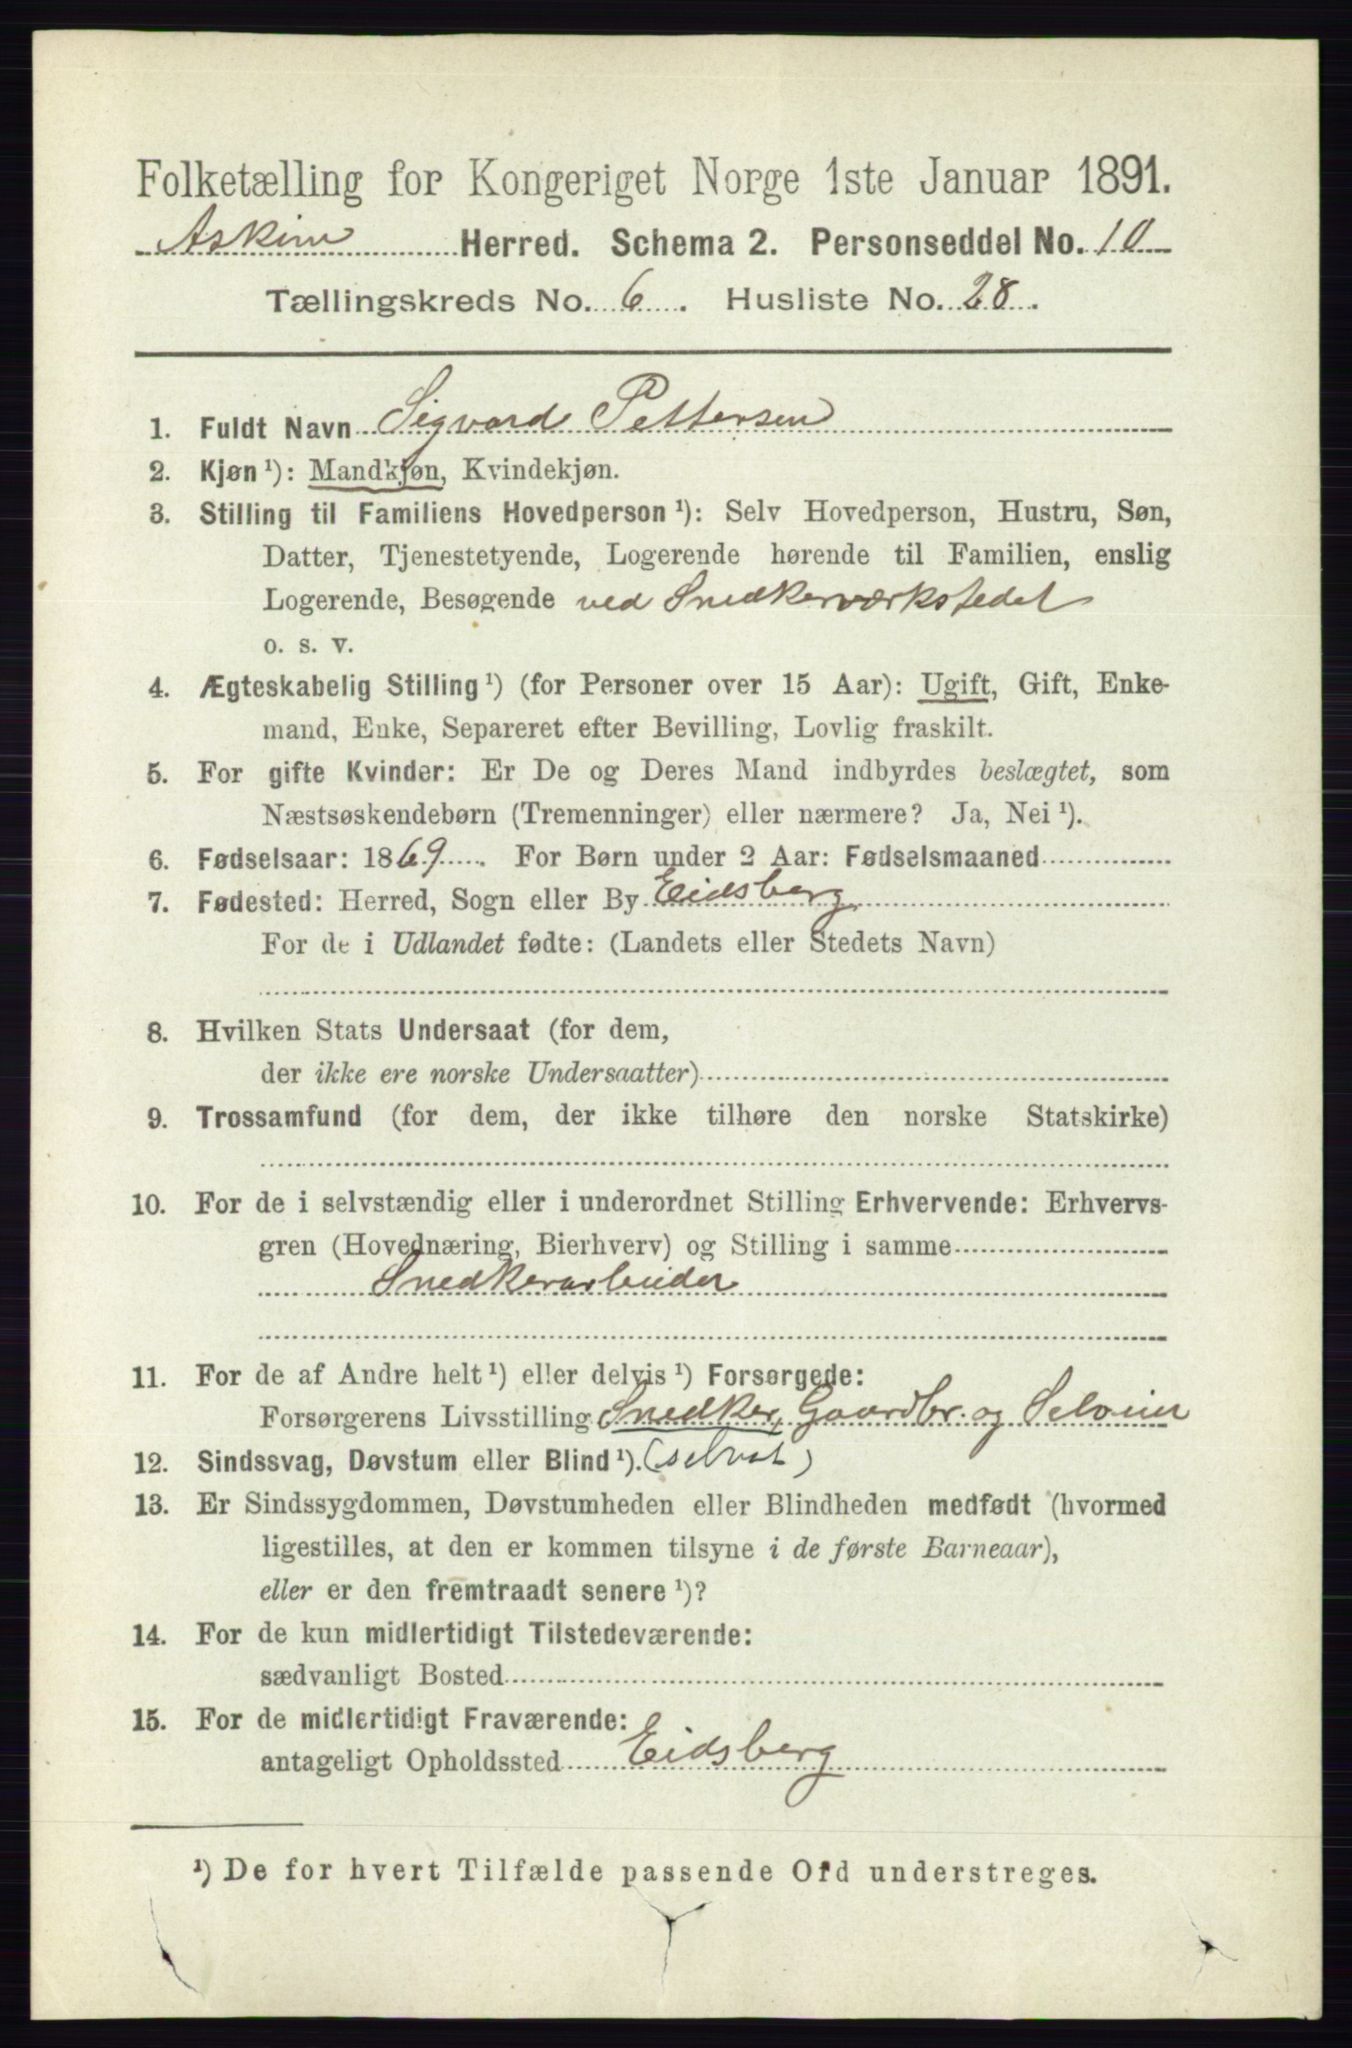 Folketælling for Kongeriget Norge 1ste Januar 1891.
Askim Herred. Schema 2. Personseddel No. 10
Tællingskreds No. 6. Husliste No. 28.
1. Fuldt Navn Sigvard Pettersen
2. Kjøn ¹): Mandkjøn, Kvindekjøn.
3. Stilling til Familiens Hovedperson ¹): Selv Hovedperson, Hustru, Søn,
Datter, Tjenestetyende, Logerende hørende til Familien, enslig
Logerende, Besøgende ved Snedkerværkstedet
o. s. v.
4. Ægteskabelig Stilling ¹) (for Personer over 15 Aar): Ugift, Gift, Enke-
mand, Enke, Separeret efter Bevilling, Lovlig fraskilt.
5. For gifte Kvinder: Er De og Deres Mand indbyrdes beslægtet, som
Næstsøskendebørn (Tremenninger) eller nærmere? Ja, Nei ¹).
6. Fødselsaar: 1869. For Børn under 2 Aar: Fødselsmaaned
7. Fødested: Herred, Sogn eller By Eidsberg
For de i Udlandet fødte: (Landets eller Stedets Navn)
8. Hvilken Stats Undersaat (for dem,
der ikke ere norske Undersaatter)
9. Trossamfund (for dem, der ikke tilhøre den norske Statskirke)
10. For de i selvstændig eller i underordnet Stilling Erhvervende: Erhvervs-
gren (Hovednæring, Bierhverv) og Stilling i samme
Snedkerarbeider
11. For de af Andre helt ¹) eller delvis ¹) Forsørgede:
Forsørgerens Livsstilling Snedker, Gaardbr. og Seloeier
12. Sindssvag, Døvstum eller Blind ¹).
13. Er Sindssygdommen, Døvstumheden eller Blindheden medfødt (hvormed
ligestilles, at den er kommen tilsyne i de første Barneaar),
eller er den fremtraadt senere ¹)?
14. For de kun midlertidigt Tilstedeværende:
sædvanligt Bosted
15. For de midlertidigt Fraværende:
antageligt Opholdssted Eidsberg
¹) De for hvert Tilfælde passende Ord understreges.